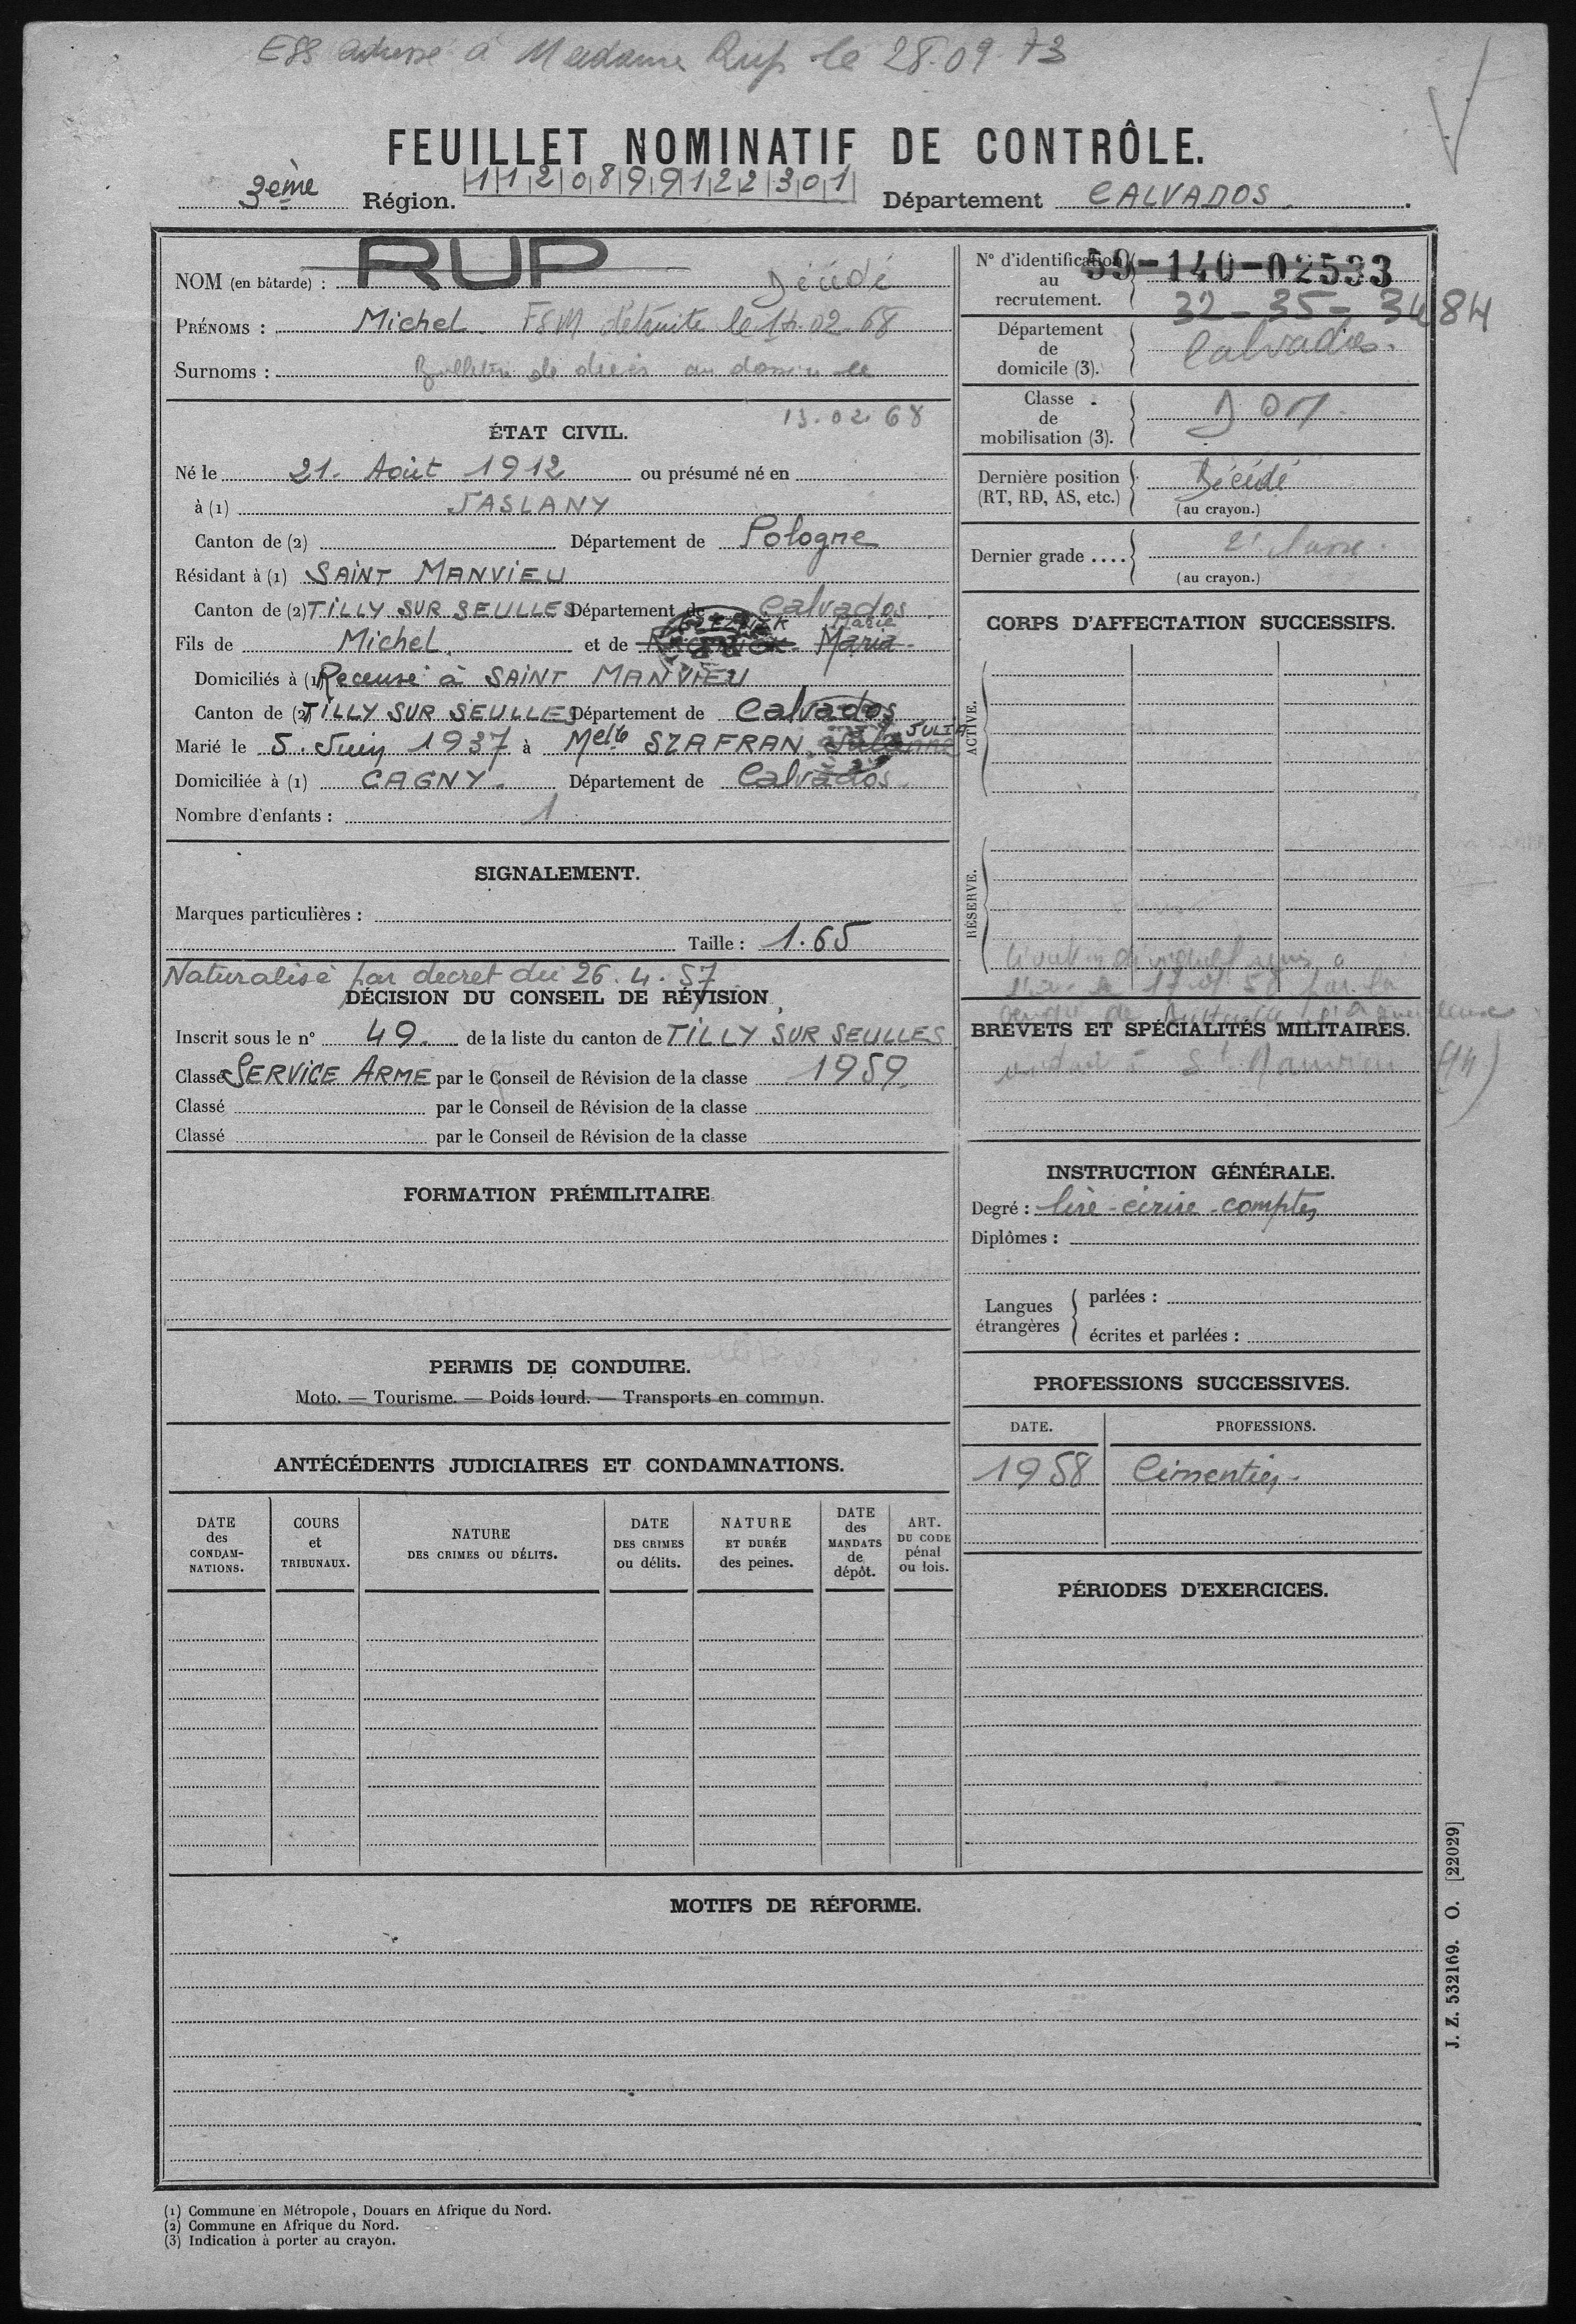 ESS adressé à Madame Rup le 28.09.73
FEUILLET NOMINATIF DE CONTRÔLE.
3ème Région. 1120899122301 Département CALVADOS.
NOM (en bâtarde) : RUP Décédé
PRÉNOMS : Michel. FSM détruite le 14.02.68
Surnoms : Bulletin de décès au dossier le
13.02.68
ÉTAT CIVIL.
Né le 21. Août 1912 ou présumé né en
à (1) JASLANY
Canton de (2) Département de Pologne
Résidant à (1) SAINT MANVIEU
Canton de (2) TILLY SUR SEULLES Département de Calvados
Marie
Fils de Michel. et de Maria
Domiciliés à (1) Recensé à SAINT MANVIEU
Canton de (2) TILLY SUR SEULLES Département de Calvados
JULIA
Marié le 5. Juin 1937 à Melle SZAFRAN
Domiciliée à (1) CAGNY. Département de Calvados.
Nombre d'enfants : 1
SIGNALEMENT.
Marques particulières :
Taille : 1.65
Naturalisé par decret du 26.4.57
DÉCISION DU CONSEIL DE RÉVISION
Inscrit sous le n° 49. de la liste du canton de TILLY SUR SEULLES
Classé SERVICE ARME par le Conseil de Révision de la classe 1959.
Classé par le Conseil de Révision de la classe
Classé par le Conseil de Révision de la classe
FORMATION PRÉMILITAIRE
PERMIS DE CONDUIRE.
Moto. — Tourisme. — Poids lourd. — Transports en commun.
ANTÉCÉDENTS JUDICIAIRES ET CONDAMNATIONS.
DATE des CONDAMNATIONS.
COURS et TRIBUNAUX.
NATURE DES CRIMES OU DÉLITS.
DATE DES CRIMES ou délits.
NATURE ET DURÉE des peines.
DATE des MANDATS de dépôt.
ART. DU CODE pénal ou lois.
N° d'identification au recrutement. 59-140-02533
32-35-3484
Département de domicile (3). Calvados.
Classe de mobilisation (3). DOM
Dernière position (RT, RD, AS, etc.) Décédé
(au crayon.)
Dernier grade .... 2e classe.
(au crayon.)
CORPS D'AFFECTATION SUCCESSIFS.
ACTIVE.
RÉSERVE.
BREVETS ET SPÉCIALITÉS MILITAIRES.
St Manvieu (14)
INSTRUCTION GÉNÉRALE.
Degré : lire - écrire - compter
Diplômes :
Langues étrangères
parlées :
écrites et parlées :
PROFESSIONS SUCCESSIVES.
DATE. PROFESSIONS.
1958 Cimentier
PÉRIODES D'EXERCICES.
MOTIFS DE RÉFORME.
J. Z. 532169. O. [22029]
(1) Commune en Métropole, Douars en Afrique du Nord.
(2) Commune en Afrique du Nord.
(3) Indication à porter au crayon.